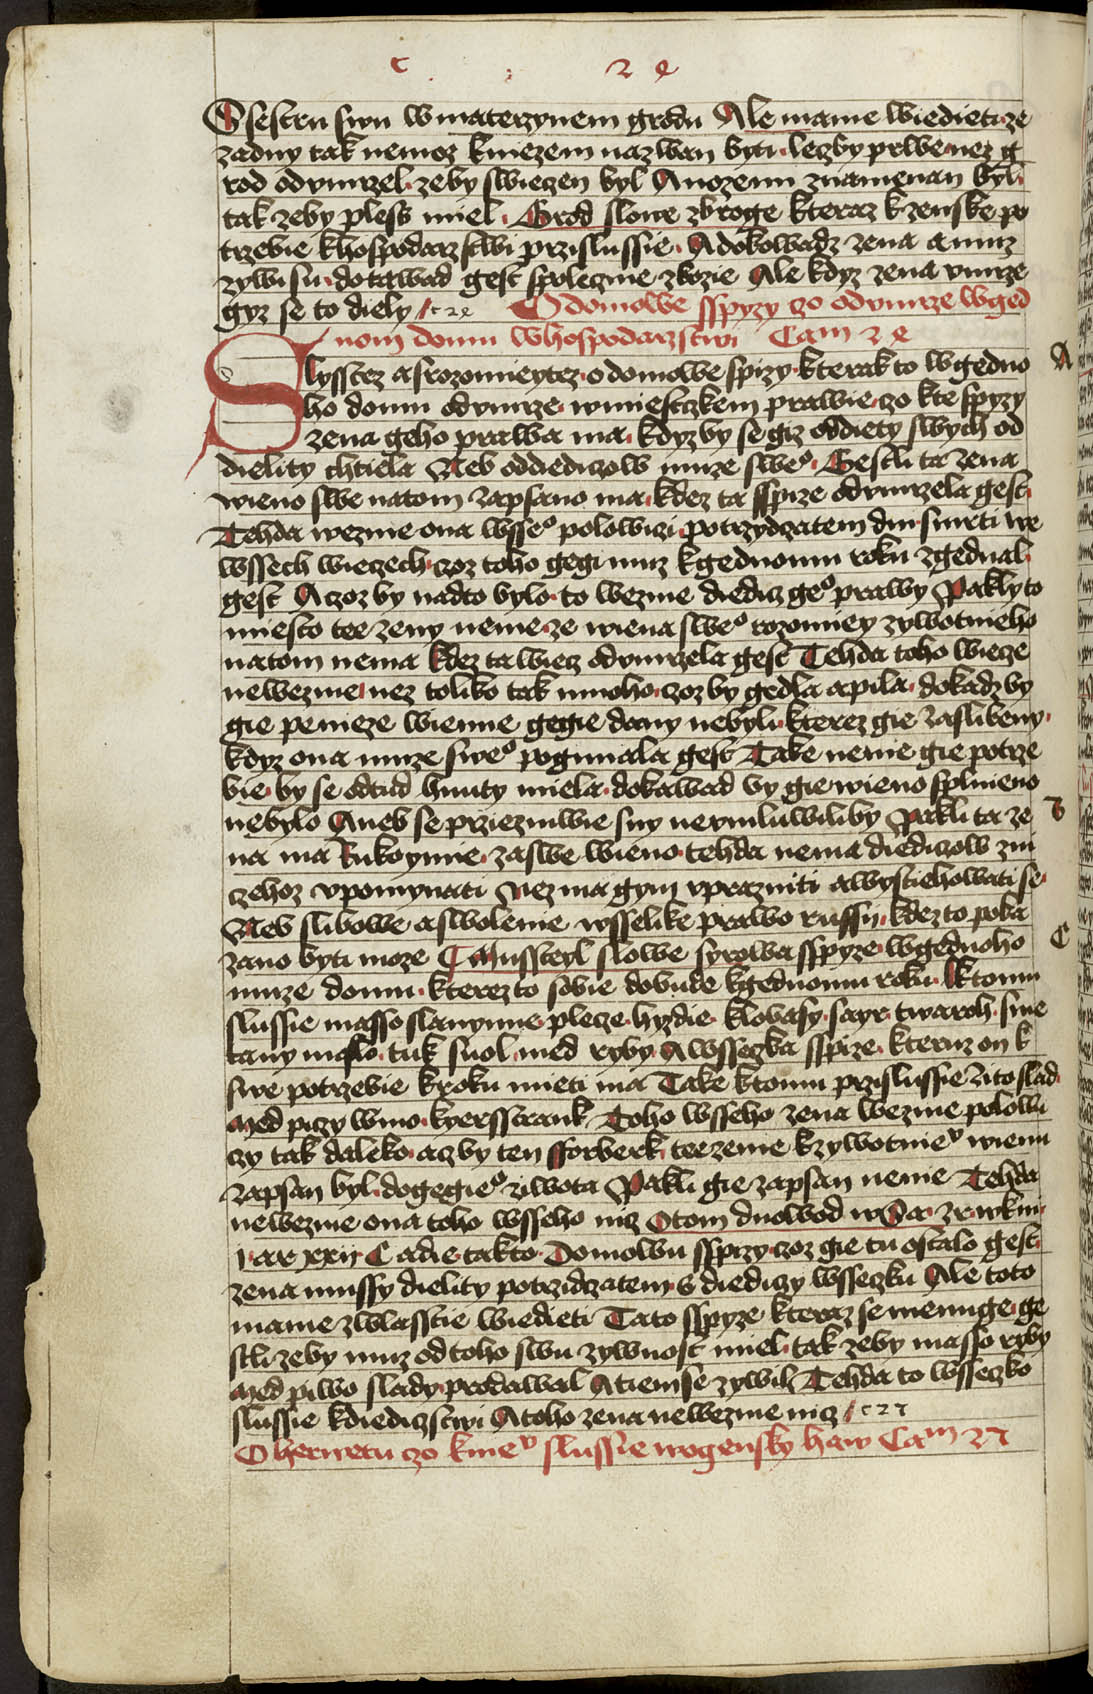 c 2 e
S sestru swu w materzynem gradu Ale mame wiedieti ze
zadny tak nemoz kniezem nazwan byti leczby prwe nez g
rod odumrzel zeby swieczen byl A nozemi znamenan byl
tak zeby pless miel Grod slowe zbroge kteraz k zenske po
trzebie k hospodarzstwi przislussie A dokowadz zena a muz
zywi su dotawad gest spoleczne zbozie Ale kdyz zena vmrze
gyz se to diely c 2 e O domowe sspyzy czo odumrze w ged
nom domu w hospodarzstwi Cam 2 e
Slysstez a srozomieytez o domowe spizy kterak to w gedno
ho domu odumrze w miestczkem prawie czo k te spyzy
zena geho prawa ma kdyz by se giz od diety swych od
dielity chtiela Neb od diediczow muze sweo Gestli ta zena
wieno swe na tom zapsano ma kdez ta sspize odumrzela gest
Tehda wezme ona wsseo polowizi po trzydczatem dni smrti we
wssech wieczech czoz toho gegi muz k gednomu roku zgednal
gest A czoz by nadto bylo to wezme diedicz geo prawy Pakly to
miesto tee zeny nenie ze wiena sweo rozomiey zywotnieho
na tom nema kdez ta wiecz odumrzela gest Tehda toho wiecze
newezme nez toliko tak mnoho czoz by gedla a pila dokadz by
gie penieze wienne gegie dany nebyli kterez gie zaslibeny
kdyz ona muze sweo pogimala gest Take nenie gie potrze
bie by se odtud hnuty miela dokawad by gie wieno splnieno
nebylo A neb se przieziniwie sny neumluwiliby Pakli ta ze
na ma Rukoymie za swe wieno tehda nema diediczow z ni
czehoz vpomynati Nez ma gym vprazniti a wystiehowati se
Neb slibowe a swolenie wsselike prawo russy kdez to poka
zano byti moze Mussteyl slowe syrowa sspyze w gednoho
muze domu kterez to sobie dobude k gednomu roku K tomu
slussie masso slanynne plecze hyzdie klobasy sayr twaroh sme
tany maslo tuk suol med ryby A wssezka sspize kteruz on k
swe potrzebie k roku mieti ma Take k tomu przislussie zito slad
Med piczy wino kyersstrank Toho wsseho zena wezme polowi
czy tak daleko aczby ten fforberk tee zenie k zywotnieo wienu
zapsan byl do gegieo ziwota Pakli gie zapsan nenie Tehda
newezme ona toho wsseho nicz O tom duowod
zena mussy dielity po trzidczatem s diediczy wsseczku Ale toto
mame zwlasstie wiedieti Tato sspyze kteraz se menuge ge
stli zeby muz od toho swu zywnost miel tak zeby masso ryby
Med piwo slady prodawal A tiem se zywil Tehda to wsseczko
slussie k diediczstwi A toho zena newezme nicz c 2 7
O herwetu czo k nieo slussie wogensky haw Cam 2 7
A
B
C